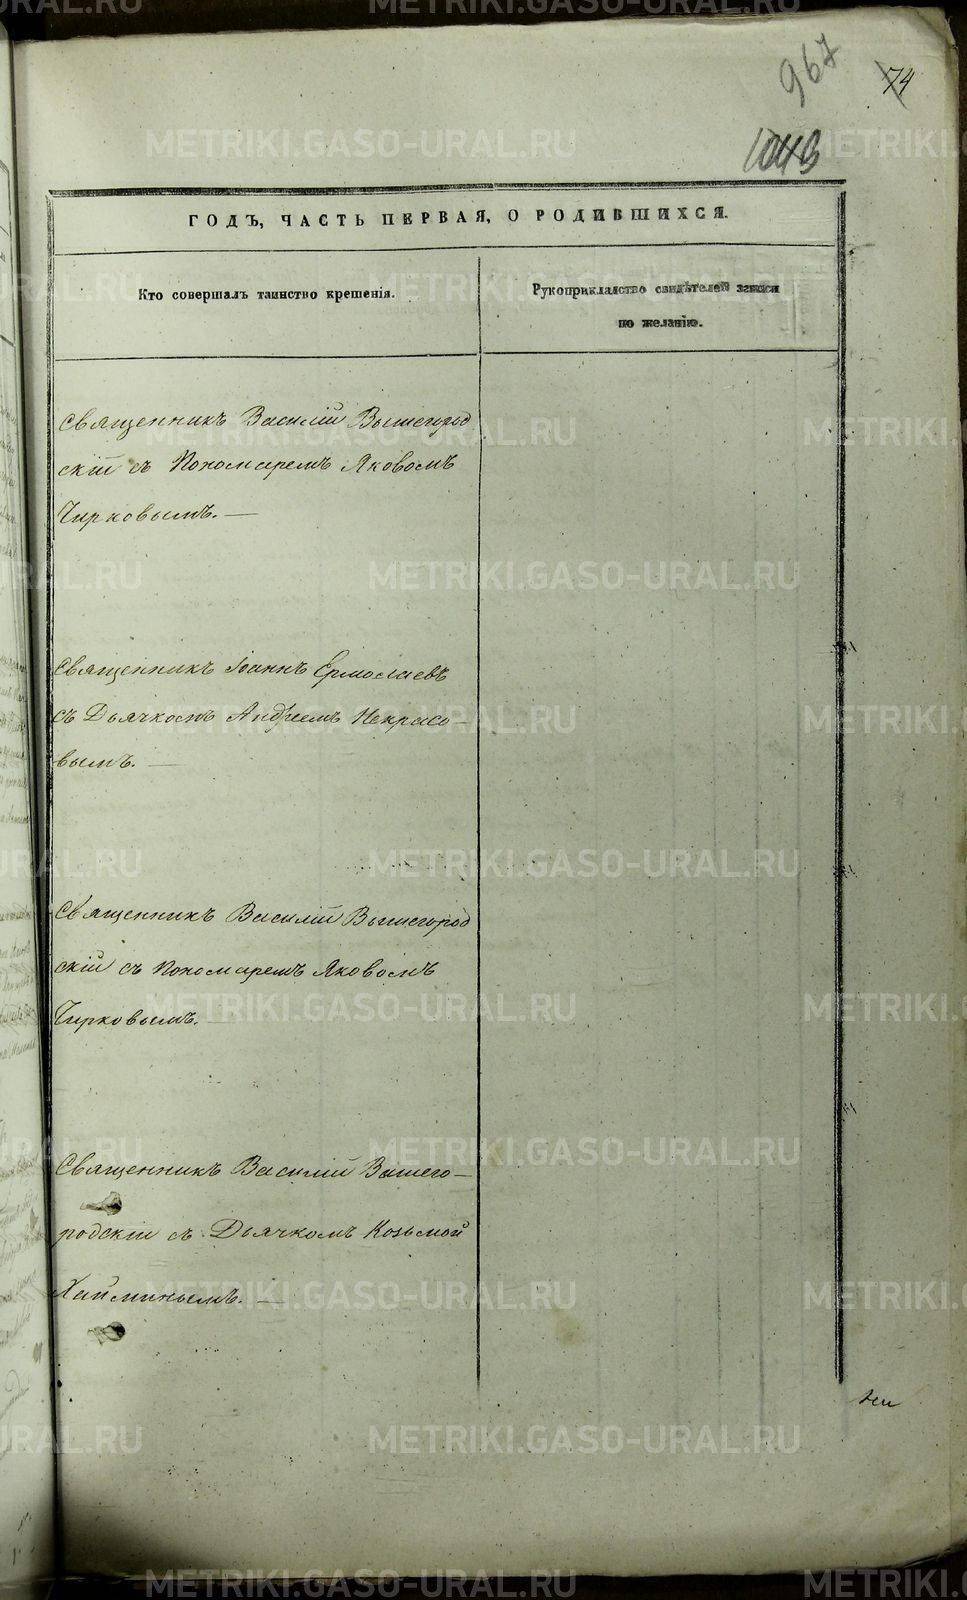 967
74
1043
ГОДЪ, ЧАСТЬ ПЕРВАЯ, О РОДИВШИХСЯ.
Кто совершалъ таинство крещенія.
Рукоприкладство свидѣтелей записи
по желанію.
Священникъ Василій Вышегород
скій съ Пономаремъ Яковомъ
Чирковымъ. —
Священникъ Іоаннъ Ермолаевъ
съ Дьячкомъ Андреемъ Некрасо-
вымъ. —
Священникъ Василій Вышегород
скій съ Пономаремъ Яковомъ
Чирковымъ. —
Священникъ Василій Вышего-
родскій съ Дьячкомъ Козьмой
Хайминымъ. —
METRIKI.GASO-URAL.RU